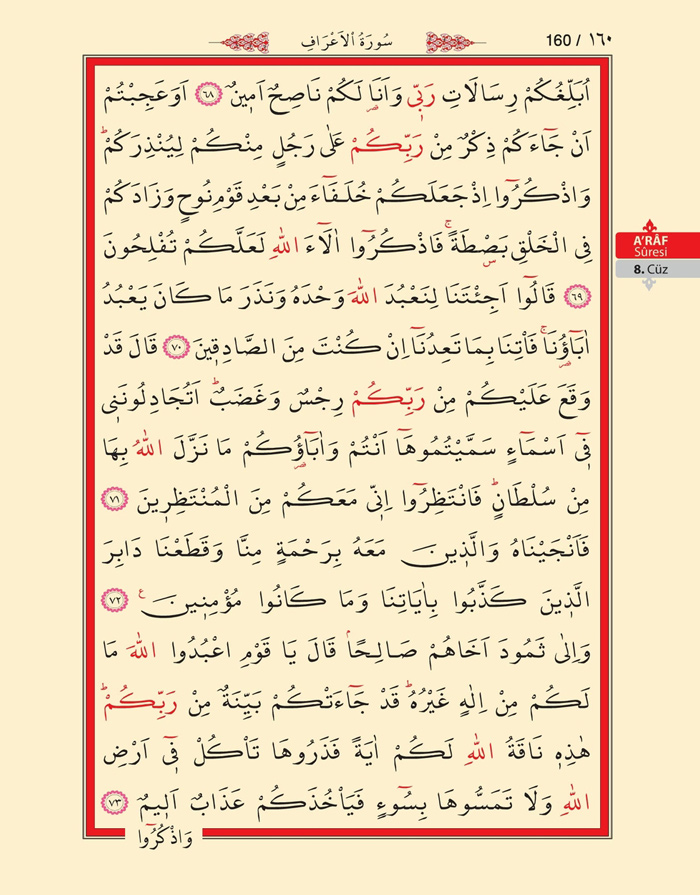 سُورَةُ الْاَعْرَافِ
160 / ١٦٠
اُبَلِّغُكُمْ رِسَالَاتِ رَبّ۪ي وَاَنَا۬ لَكُمْ نَاصِحٌ اَم۪ينٌ ﴿٦٨﴾ اَوَعَجِبْتُمْ
اَنْ جَٓاءَكُمْ ذِكْرٌ مِنْ رَبِّكُمْ عَلٰى رَجُلٍ مِنْكُمْ لِيُنْذِرَكُمْۜ
وَاذْكُرُٓوا اِذْ جَعَلَكُمْ خُلَفَٓاءَ مِنْ بَعْدِ قَوْمِ نُوحٍ وَزَادَكُمْ
فِي الْخَلْقِ بَصْۣطَةًۚ فَاذْكُرُٓوا اٰلَٓاءَ اللّٰهِ لَعَلَّكُمْ تُفْلِحُونَ
﴿٦٩﴾ قَالُٓوا اَجِئْتَنَا لِنَعْبُدَ اللّٰهَ وَحْدَهُ وَنَذَرَ مَا كَانَ يَعْبُدُ
اٰبَٓاؤُ۬نَاۚ فَأْتِنَا بِمَا تَعِدُنَٓا اِنْ كُنْتَ مِنَ الصَّادِق۪ينَ ﴿٧٠﴾ قَالَ قَدْ
وَقَعَ عَلَيْكُمْ مِنْ رَبِّكُمْ رِجْسٌ وَغَضَبٌۜ اَتُجَادِلُونَن۪ي
ف۪ٓي اَسْمَٓاءٍ سَمَّيْتُمُوهَٓا اَنْتُمْ وَاٰبَٓاؤُ۬كُمْ مَا نَزَّلَ اللّٰهُ بِهَا
مِنْ سُلْطَانٍۜ فَانْتَظِرُٓوا اِنّ۪ي مَعَكُمْ مِنَ الْمُنْتَظِر۪ينَ ﴿٧١﴾
فَاَنْجَيْنَاهُ وَالَّذ۪ينَ مَعَهُ بِرَحْمَةٍ مِنَّا وَقَطَعْنَا دَابِرَ
الَّذ۪ينَ كَذَّبُوا بِاٰيَاتِنَا وَمَا كَانُوا مُؤْمِن۪ينَ۟ ﴿٧٢﴾
وَاِلٰى ثَمُودَ اَخَاهُمْ صَالِحًاۢ قَالَ يَا قَوْمِ اعْبُدُوا اللّٰهَ مَا
لَكُمْ مِنْ اِلٰهٍ غَيْرُهُۜ قَدْ جَٓاءَتْكُمْ بَيِّنَةٌ مِنْ رَبِّكُمْۜ
هٰذِه۪ نَاقَةُ اللّٰهِ لَكُمْ اٰيَةً فَذَرُوهَا تَأْكُلْ ف۪ٓي اَرْضِ
اللّٰهِ وَلَا تَمَسُّوهَا بِسُٓوءٍ فَيَأْخُذَكُمْ عَذَابٌ اَل۪يمٌ ﴿٧٣﴾
وَاذْكُرُٓوا
A'RÂF
Sûresi
8. Cüz